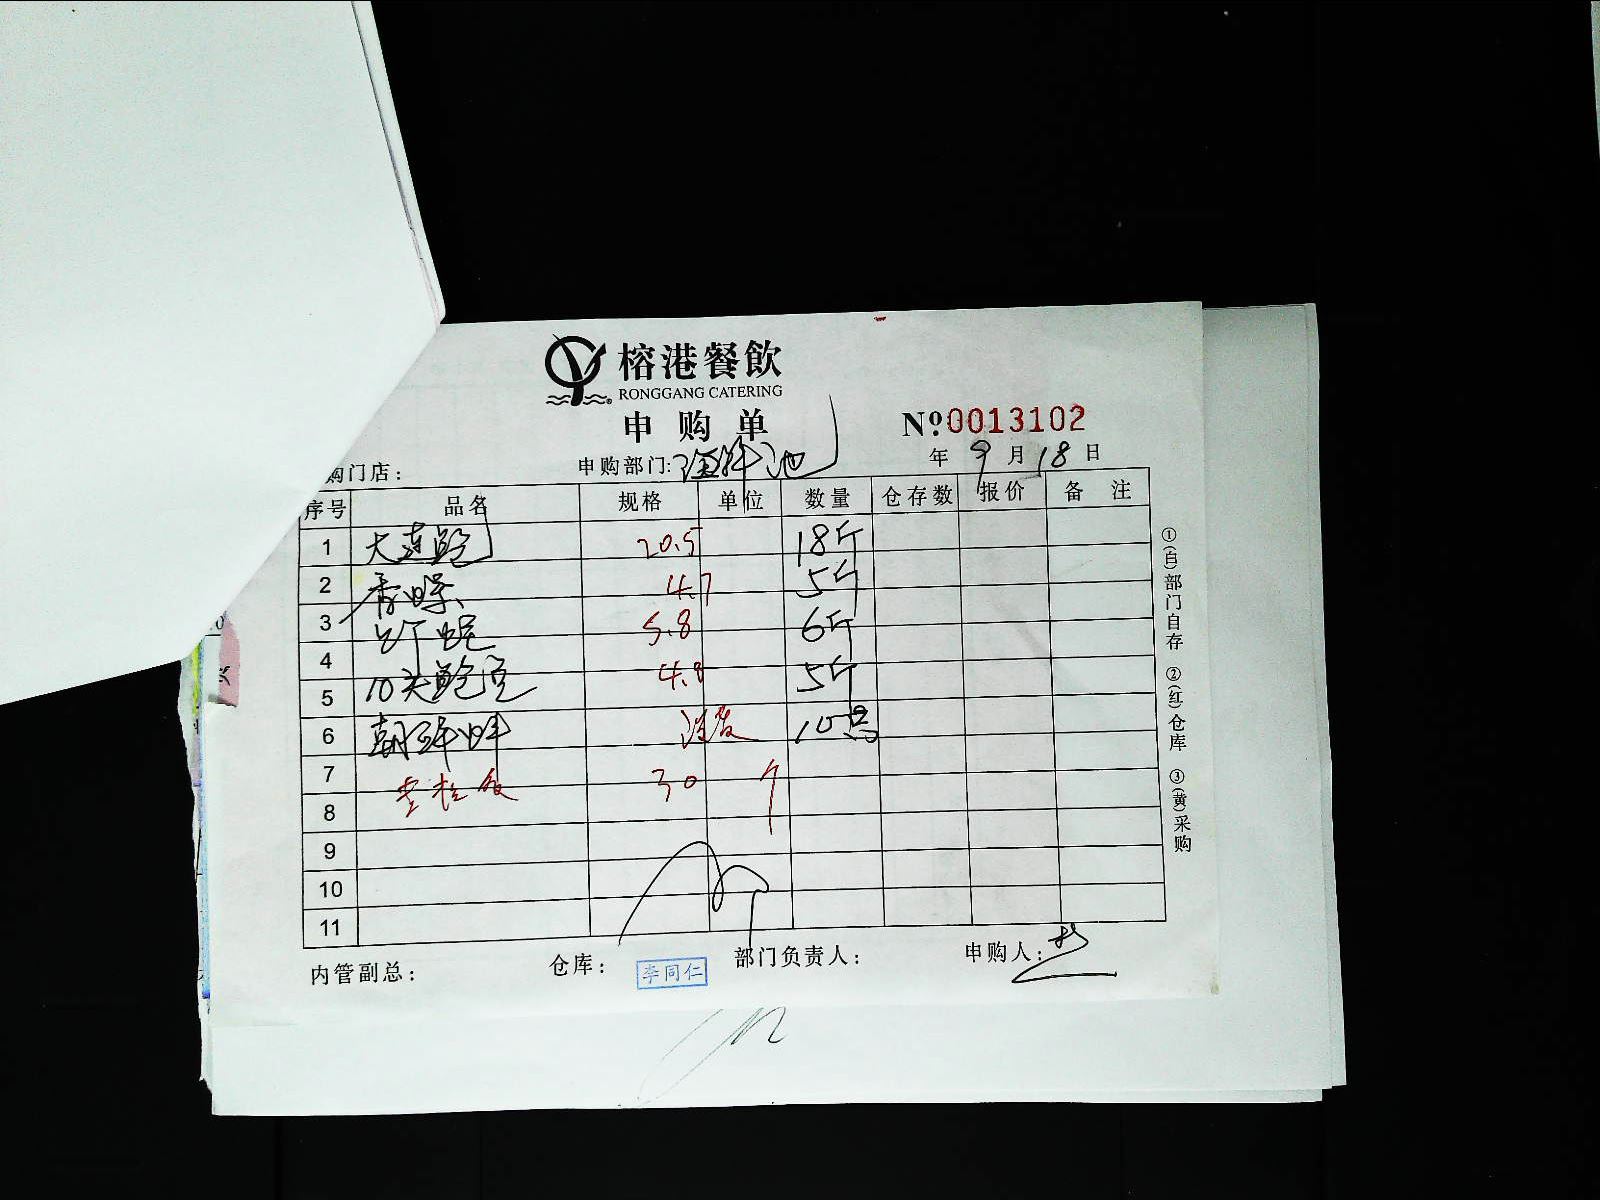 榕港餐飲
RONGGANG CATERING
申购单
№0013102
购门店：
申购部门：海鲜池
年 9 月 18 日
序号 品名 规格 单位 数量 仓存数 报价 备注
1 大连鲍 20.5 18斤
2 香螺 4.7 5斤
3 5.8 6斤
4 10头鲍 4.8 5斤
5
6 朝鲜蚌 没发 10只
7 30 个
8
9
10
11
①(白)部门自存 ②(红)仓库 ③(黄)采购
内管副总：
仓库：
李同仁
部门负责人：
申购人：